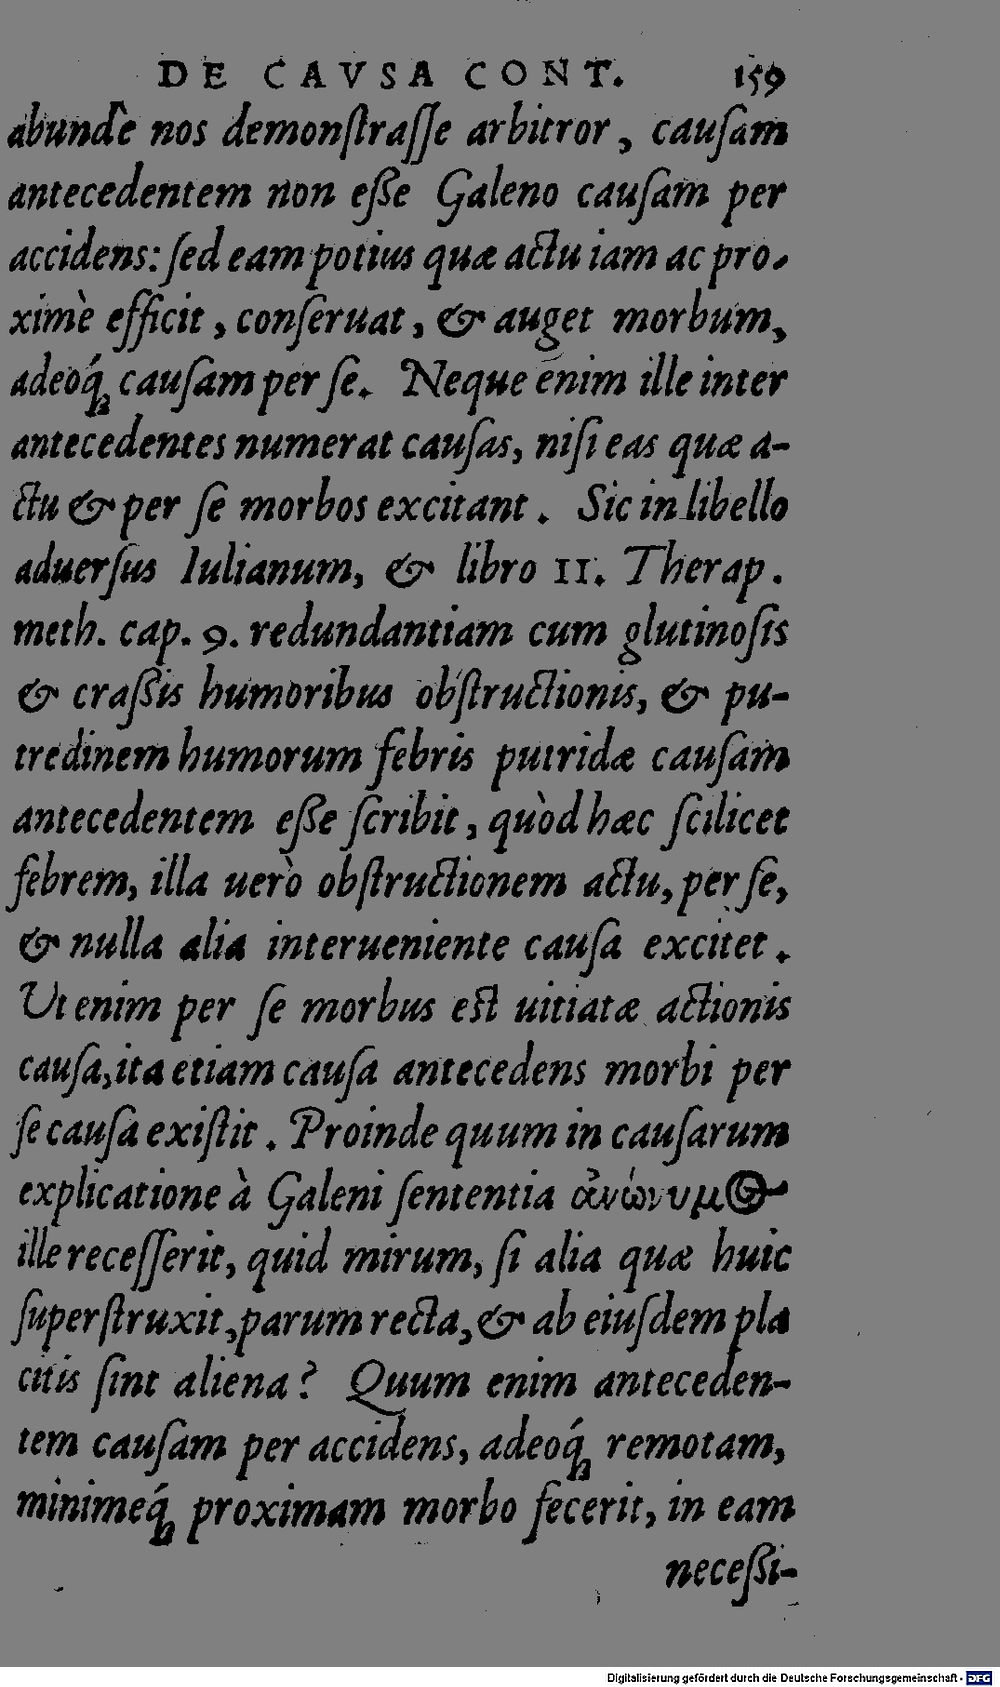 DE CAVSA CONT. 159
abundè nos demonſtraſſe arbitror, cauſam
antecedentem non eſſe Galeno cauſam per
accidens: ſed eam potius quæ actu iam ac pro-
ximè efficit, conſeruat, & auget morbum,
adeoq́; cauſam per ſe. Neque enim ille inter
antecedentes numerat cauſas, niſi eas quæ a-
ctu & per ſe morbos excitant. Sic in libello
aduerſus Iulianum, & libro II. Therap.
meth. cap. 9. redundantiam cum glutinoſis
& craſſis humoribus obſtructionis, & pu-
tredinem humorum febris putridæ cauſam
antecedentem eſſe ſcribit, quòd hæc ſcilicet
febrem, illa uerò obſtructionem actu, per ſe,
& nulla alia interueniente cauſa excitet.
Ut enim per ſe morbus eſt uitiatæ actionis
cauſa, ita etiam cauſa antecedens morbi per
ſe cauſa exiſtit. Proinde quum in cauſarum
explicatione à Galeni ſententia ἀνώνυμος
ille receſſerit, quid mirum, ſi alia quæ huic
ſuperſtruxit, parum recta, & ab eiuſdem pla
citis ſint aliena? Quum enim anteceden-
tem cauſam per accidens, adeoq́; remotam,
minimeq́; proximam morbo fecerit, in eam
neceſſi-
Digitalisierung gefördert durch die Deutsche Forschungsgemeinschaft - DFG